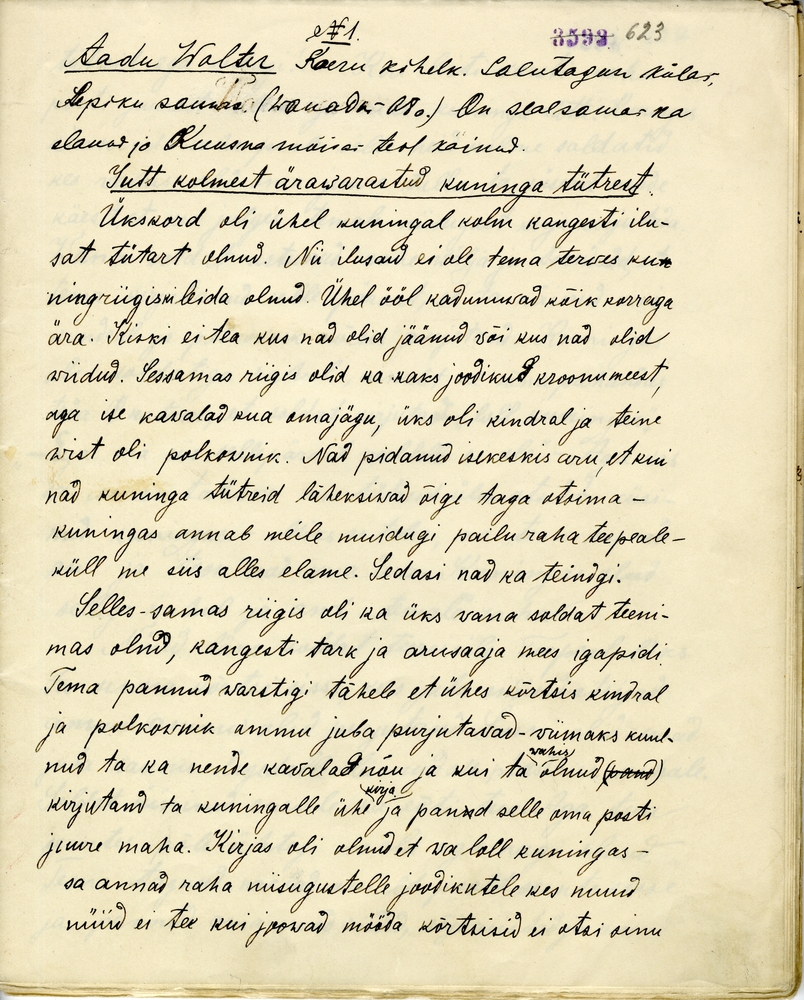 №1.
3592 623
Aadu Wolter Koeru kihelk. Salutagun külas,
Lepiku saunas. (wanadus 08a.) On sealsamas ka
elanud ja Kuusna mõisas teol käinud.
Jutt kolmest ärawarastud kuninga tütrest.
Ükskord oli ühel kuningal kolm kangesti ilu-
sat tütart olnud. Nii ilusaid ei ole tema terwes kun
ningriigis leida olnud. Ühel ööl kadunuwad kõik korraga
ära. Kiski ei tea kus nad olid jäänud või kus nad olid
wiidud. Sessamas riigis olid ka kaks joodikud kroonumeest,
aga ise kawalad kua omajägu, üks oli kindral ja teine
wist oli polkownik. Nad pidanud isekeskis aru, et kui
nad kuninga tütreid läheksiwad õige taga otsima -
kuningas annab meile muidugi pailu raha teepeale -
küll me siis alles elame. Sedasi nad ka teindgi.
Selles-samas riigis oli ka üks vana soldat teeni-
mas olnd, kangesti tark ja arusaaja mees igapidi.
Tema pannud warstigi tähele et ühes kõrtsis kindral
ja polkownik ammu juba purjutavad - viimaks kuul-
nud ta ka nende kavalad nõu ja kui ta wahis olnud (pand)
kirjutand ta kuningalle ühe kirja ja pannd selle oma posti
juure maha. Kirjas oli olnud et wa loll kuningas -
sa annad raha niisugustelle joodikutele kes muud
nüüd ei tee kui joowad mööda kõrtsisid ei otsi sinu